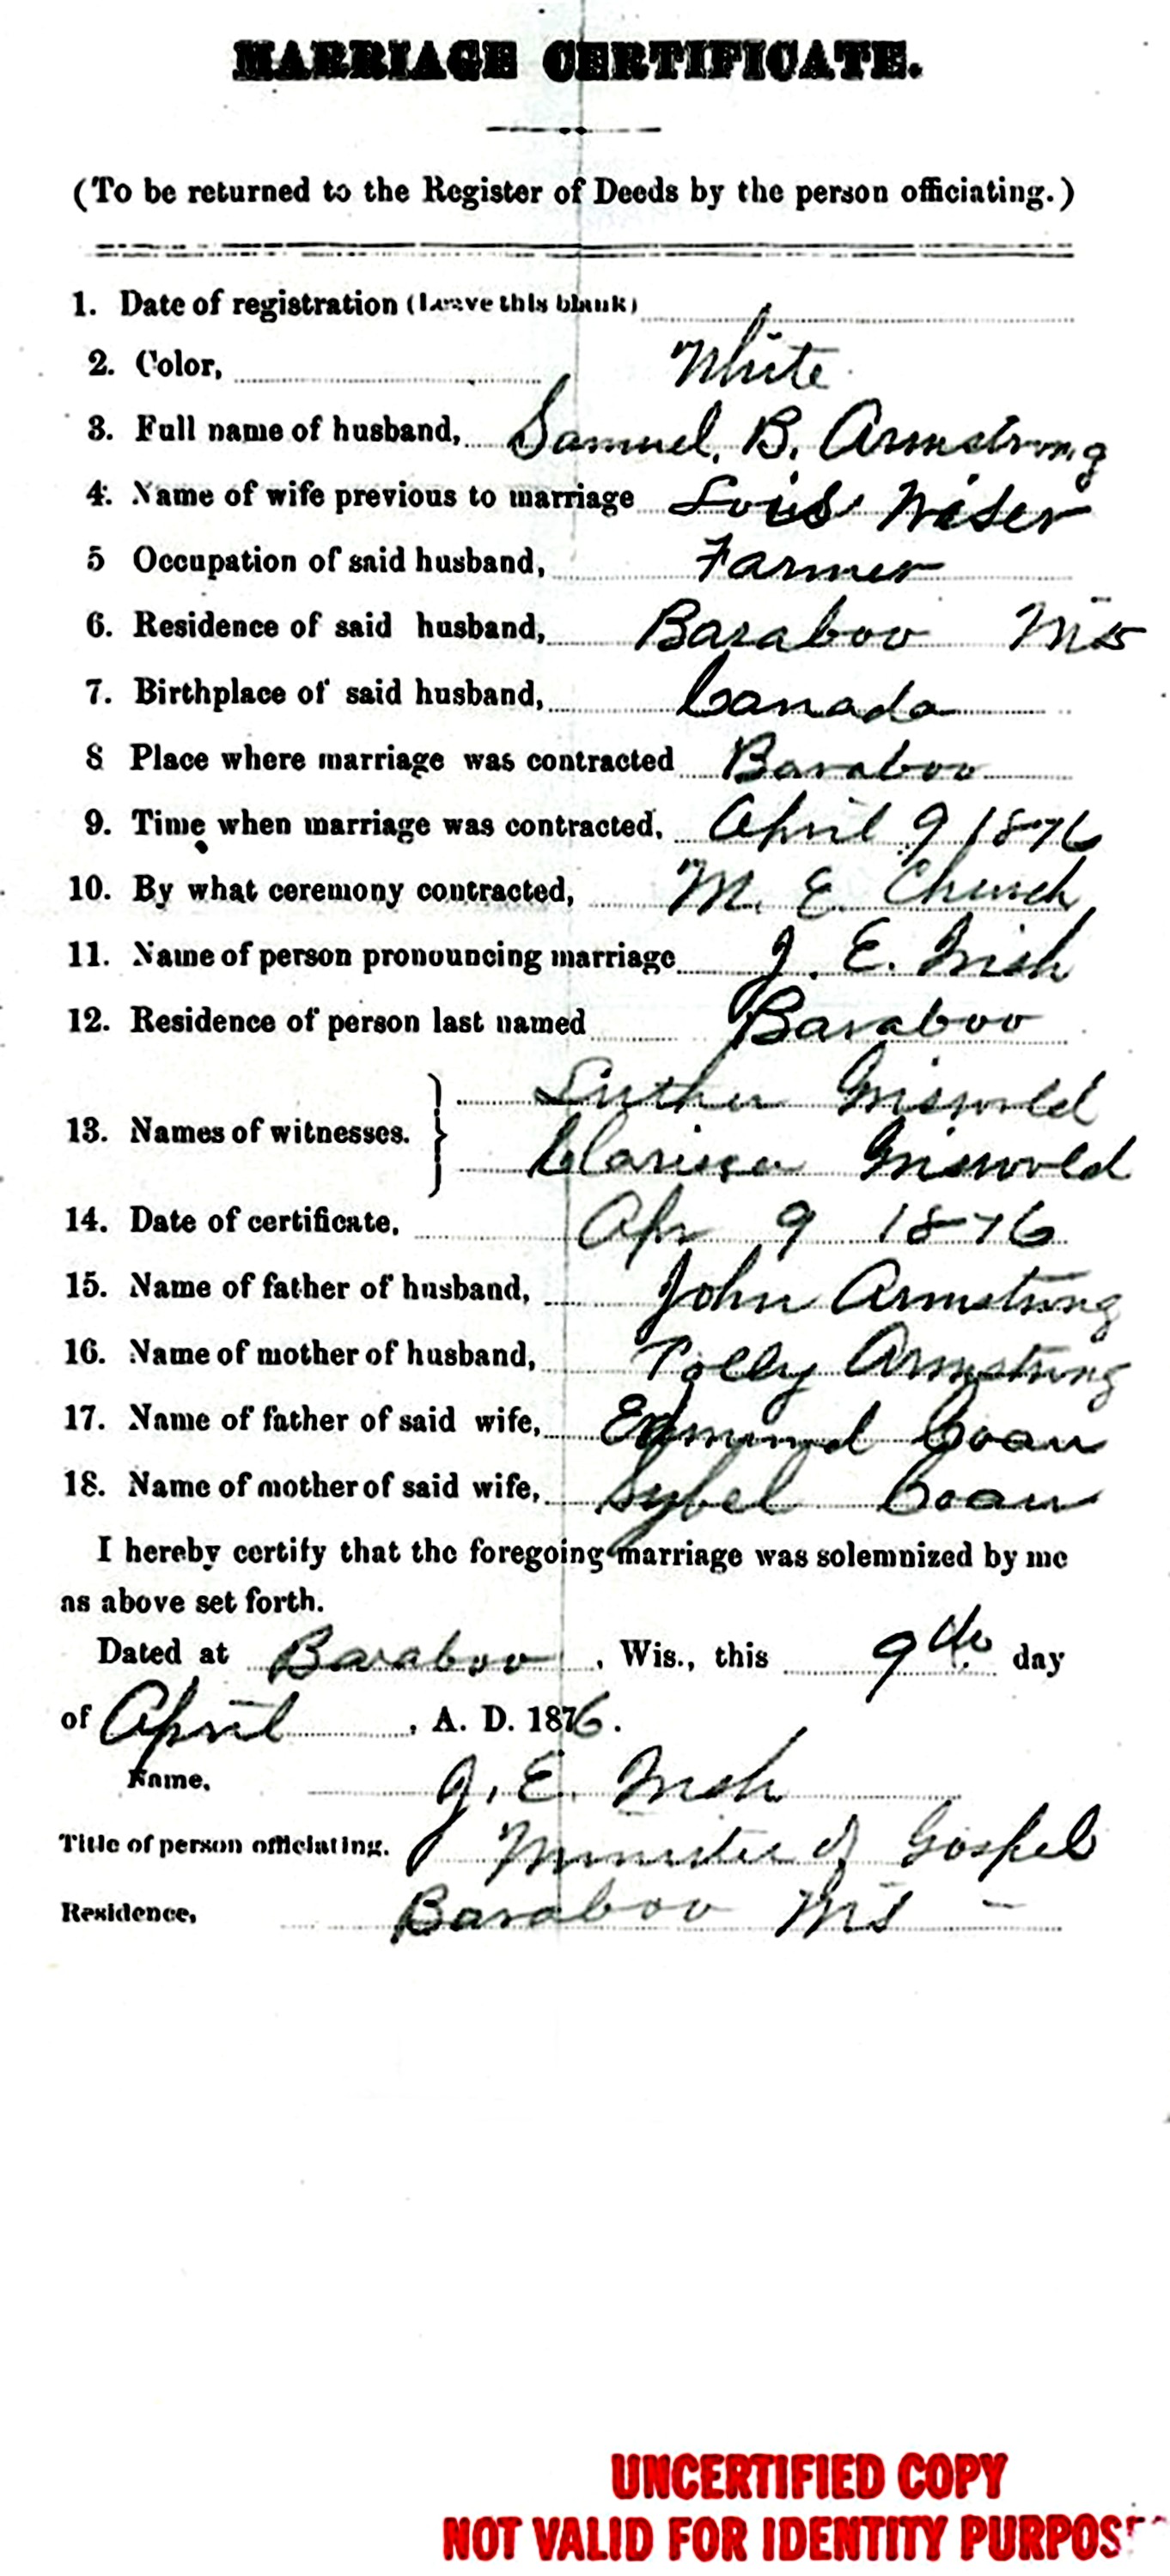 MARRIAGE CERTIFICATE.
(To be returned to the Register of Deeds by the person officiating.)
1. Date of registration (Leave this blank)
2. Color, White
3. Full name of husband, Samuel. B. Armstrong
4. Name of wife previous to marriage Lois Wiser
5 Occupation of said husband, Farmer
6. Residence of said husband, Baraboo Wis
7. Birthplace of said husband, Canada
8 Place where marriage was contracted Baraboo
9. Time when marriage was contracted, April 9 1876
10. By what ceremony contracted, M. E. Church
11. Name of person pronouncing marriage J. E. Irish
12. Residence of person last named Baraboo
Luther Griswold
13. Names of witnesses.
Clarissa Griswold
14. Date of certificate, Apr 9 1876
15. Name of father of husband, John Armstrong
16. Name of mother of husband, Polly Armstrong
17. Name of father of said wife, Edmund Coan
18. Name of mother of said wife, Sybel Coan
I hereby certify that the foregoing marriage was solemnized by me
as above set forth.
Dated at Baraboo, Wis., this 9th day
of April, A. D. 1876.
Name, J. E. Irish
Title of person officiating. Minister of Gospel
Residence, Baraboo Wis
UNCERTIFIED COPY
NOT VALID FOR IDENTITY PURPOSES